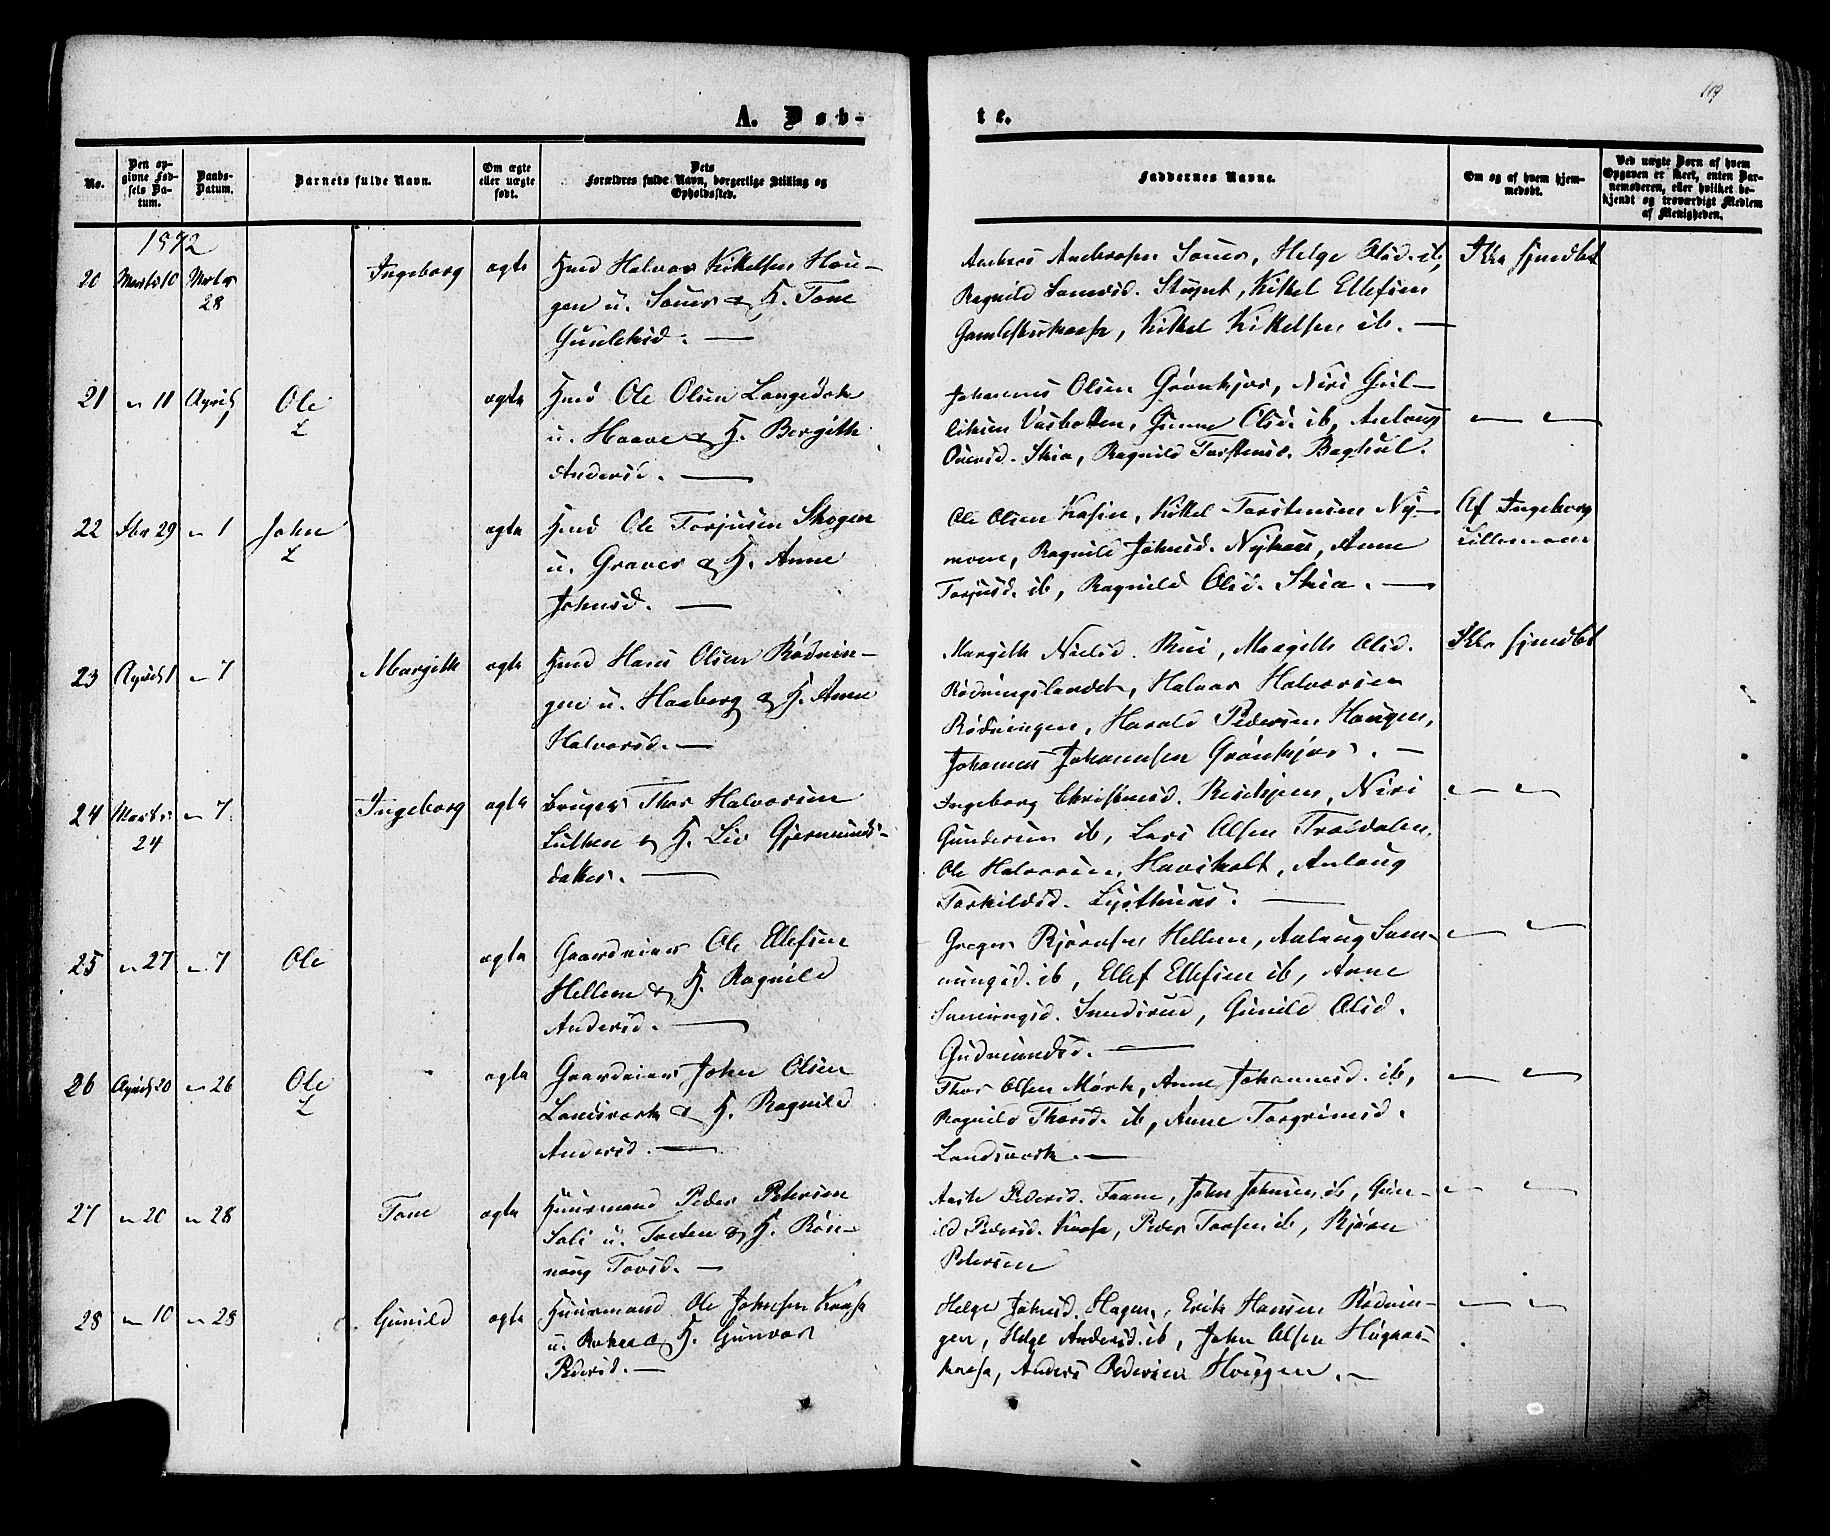 119
A. Døb-
te.
No.
Den op-
givne Fød-
sels Da-
tum.
Daabs-
Datum.
Barnets fulde Navn.
Om ægte
eller uægte
født.
Dets
Forældres fulde Navn, borgerlige Stilling og
Opholdssted.
Faddernes Navne.
Om og af hvem hjem-
medøbt.
Ved uægte Børn af hvem
Opgaven er skeet, enten Bar-
nemoderen, eller hvilket be-
kjendt og troværdigt Medlem
af Menigheden.
1872
20 Marts 10 Marts 28 Ingeborg ægte
Hmd Halvor Kittelsen Hau-
gen u. Sauer & H. Tone
Gunleksd. —
Anders Andersen Sauer, Helge Olsd. ib,
Ragnild Sam Stupet, Kittel Ellefsen
Kittel Kittelsen ib. —
Ikke hjemdøbt
21 " 11 April Ole ægte
Hmd Ole Olsen Langedok
u. Haave & H. Bergith
Andersd. —
Johannes Olsen Grønkjær, Niri Gul-
liksen Vasbotten, Gunne Olsd. ib, Anlaug
Skia, Ragnild Torstensd.
" "
22 Fbr 29 " 1 John ægte
Hmd Ole Torjusen Skogen
u. Graver & H. Anne
Johnsd. —
Ole Olsen Kasin, Kittel Torstensen Ny-
moen, Ragnild Johnsd. Nyhaus, Anne
Torjusd. ib, Ragnild Olsd. Skia. —
Af Ingeborg
Lillemoen
23 April 1 " 7 Margith ægte
Hmd Hans Olsen Rødnin-
gen u. Haaberg & H. Anne
Halvorsd. —
Margith Nielsd. Rui, Margith Olsd.
Rødningslandet, Halvor Halvorsen
Rødningen, Harald Pedersen Haugen,
Johannes Johannesen Grønkjær. —
Ikke hjemdøbt
24 Marts 24 " 7 Ingeborg ægte
Bruger Thor Halvorsen
Luthen & H. Liv Gjermunds-
datter. —
Ingeborg Christensd. Niri
Gundersen ib, Lars Olsen Trældalen,
Ole Halvorsen, Haviholt, Anlaug
Torkildsd. Lysthuus. —
" "
25 " 27 " 7 Ole ægte
Gaardeier Ole Ellefsen
Hellem & H. Ragnild
Andersd. —
Greger Bjørnsen Hellem, Anlaug Sam-
mingsd. ib, Ellef Ellefsen ib, Anne
Smedsrud, Gunild Olsd.
Gudmundsd. —
" "
26 April 20 " 26 Ole ægte
Gaardeier John Olsen
Landsverk & H. Ragnild
Andersd. —
Thor Olsen Mørk, Anne Johannesd. ib,
Ragnild Thorsd. ib, Anne Torgrimsd.
Landsverk. —
" "
27 " 20 " 28 Tone ægte
Huusmand Peder Petersen
Soli u. Tveten & H. Røn-
naug Tovsd. —
Aaste Pedersd. Faane, John Johnsen ib, Gun-
ild Pedersd. Kaasa, Peder Torsen ib, Bjørn
Petersen
" "
28 " 10 " 28 Gunild ægte
Huusmand Ole Johnsen Kaasa
u. & H. Gunvor
Pedersd. —
Helge Johnsd. Hagen, Erik Hansen Rødnin-
gen, Helge Andersd. ib, John Olsen
Kaasa, Anders Pedersen Haugen. —
" "